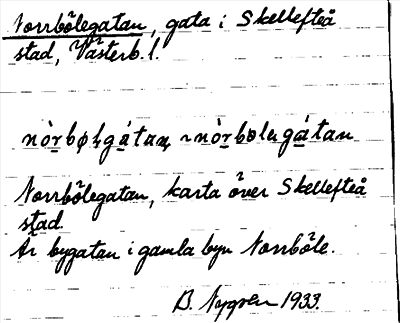 Norrbölegatan, gata i Skellefteå
stad, Västerb. l.
nòrbølegátan ~ nòrbolegátan
Norrbölegatan, karta över Skellefteå
stad.
Är bygatan i gamla byn Norrböle.
B. Nygren 1933